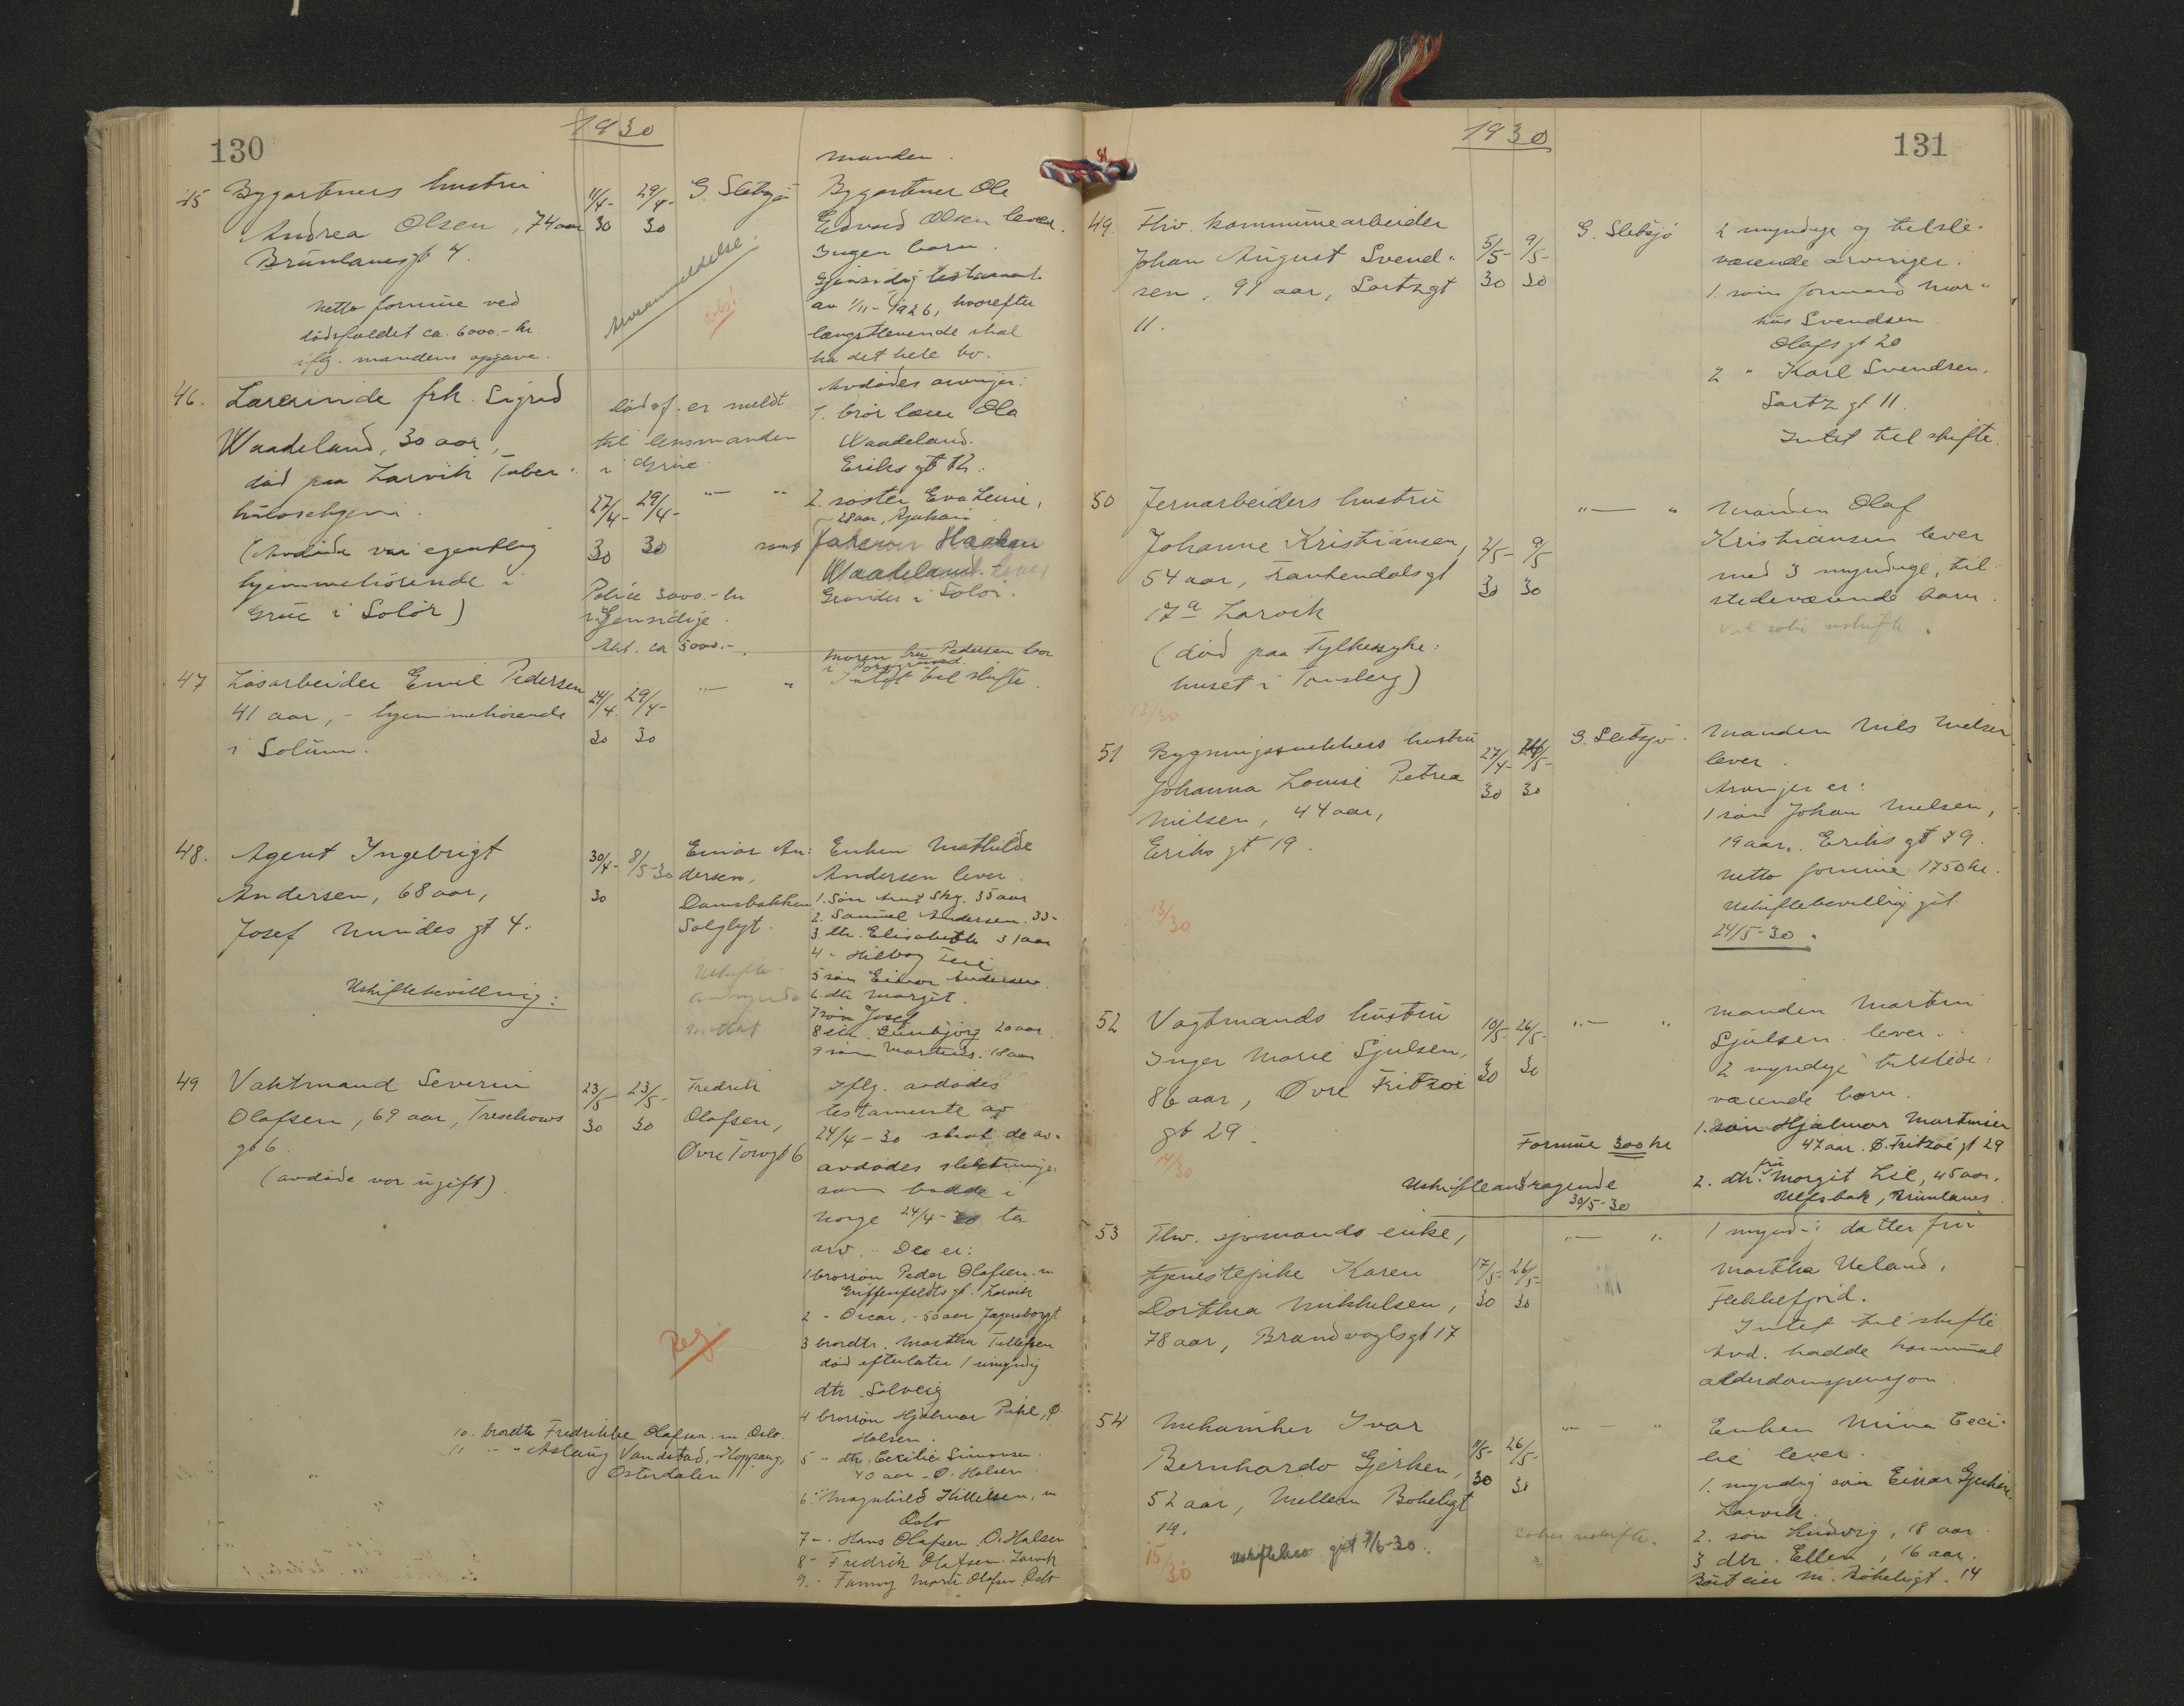 130
1930
45
Bygartners hustru
Andrea Olsen, 74 aar
Brunlanesgt 4.
Netto formue ved
dødsfaldet ca. 6000.- kr.
iflg. mandens opgave.
11/4-30
29/4-30
G. Slebsjø
Arveanmeldelse.
Manden.
Bygartner Ole
Edvard Olsen lever.
Ingen barn.
Gjensidig testament
av 1/11-1926, hvorefter
længstlevende skal
ha det hele bo.
46.
Lærerinde frk. Sigrid
Waadeland, 30 aar,
död paa Larvik Tuber-
kulosehjem.
(Avdöde var egentlig
hjemmehörende i
Grue i Solör)
Dödsf. er meldt
til lensmanden
i Grue.
27/4-30
29/4-30
"—"
Police 3000.- kr
i Gjensidige.
Akt. ca 5000.-
Avdödes arvinger:
1. bror lærer Ola
Waadeland.
Eriks gt 12.
2. söster Eva Lenie,
28 aar, Rjukan
samt Haakon
Waadeland.
Grinder i Solör.
47
Løsarbeider Emil Pedersen
41 aar, - hjemmehörende
i Solum.
24/4-30
29/4-30
"—"
Moren fru Pedersen bor
i Porsgrund.
Intet til skifte.
48.
Agent Ingebrigt
Andersen, 68 aar,
Josef Mundes gt 4.
Uskiftebevilling:
30/4-30
8/5-30
Einar An-
dersen,
Damsbakken
Solglyt.
Uskifte
Enken Mathilde
Andersen lever.
1. Sön Arnt Skg. 35 aar
2. Samuel Andersen. 33-
3. dtr. Elisabeth 31 aar
4 - Hilborg
5 sön Einar Andersen
6. dtr Margit.
7 sön Josef
8 dtr. Gunbjörg 20 aar
9 sön Martius. 18 aar
49
Vaktmand Severin
Olafsen, 69 aar, Treschows
gt 6.
(avdöde var ugift)
23/5-30
23/5-30
Fredrik
Olafsen,
Øvre Torvgt 6
Reg.
Iflg. avdödes
testamente av
24/4-30 skal de av
avdödes slektninger
som bodde i
Norge 24/4-30 ta
arv. - De er:
1 brorsön Peder Olafsen. m
Griffenfeldts gt. Larvik
2 - Oscar, - 50 aar Jegersborggt
3 brordtr. Martha Tollefsen
död efterlater 1 umyndig
dtr. Solveig
4 brorsön Hjalmar Pihl, Ø.
Halsen.
5 " dtr. Cecilie Simonsen
40 aar - Ø. Halsen
6. " Magnhild Kittilsen, m
Oslo
7 - Hans Olafsen. Ø. Halsen
8 - Fredrik Olafsen. Larvik
9. - Fanny Marie Olafsen Oslo
10. brordtr Fredrikke Olafsen. m Oslo.
11 - " Aslaug Vandstad, - Koppang,
Österdalen
131
1930
49.
Fhv. kommunearbeider
Johan August Svend-
sen, 91 aar, Sartzgt
11.
5/5-30
9/5-30
G. Slebsjø
2 myndige og tilste-
værende arvinger.
1. sön formand Mar-
kus Svendsen
Olafsgt 20
2 " Karl Svendsen.
Sartz gt 11.
Intet til skifte.
50
Jernarbeiders hustru
Johanne Kristiansen,
54 aar, Frankendalsgt
17a Larvik
(död paa Fylkessyke-
huset i Tönsberg)
2/5-30
9/5-30
"—"
Manden Olaf
Kristiansen lever
med 3 myndige, til-
stedeværende barn.
12/30
51
Bygningssnekkers hustru
Johanna Louise Petrea
Nielsen, 44 aar,
Eriks gt 19.
13/30
27/4-30
G. Slebsjø.
Manden Nils Nielsen
lever.
Arvinger er:
1 sön Johan Nielsen,
19 aar. Eriks gt 79.
Netto formue 1750 kr.
Uskiftebevilling git
24/5-30.
52
Vagtmands hustru
Inger Marie Sjulsen,
86 aar, Øvre Fritzøe
gt 29.
14/30
10/5-30
26/5-30
"—"
Formue 300 kr
Uskifteandragende
30/5-30
Manden Martin
Sjulsen lever.
2 myndige tilstede-
værende barn.
1. sön Hjalmar Martinsen
47 aar. Ø. Fritzøe gt 29
2. dtr. fru Margit Lie, 45 aar.
Ulfsbak, Brunlanes
53
Fhv. sjømands enke,
tjenestepike Karen
Dorthea Mikkelsen,
78 aar, Brandvagtsgt 17
17/5-30
26/5-30
"—"
1 mynd-: datter fru
Martha Ueland,
Flekkefjord.
Intet til skifte
Avd. hadde kommunal
alderdomspensjon.
54
Mekaniker Ivar
Bernhardo Gjerken,
52 aar, Mellem Bøkeligt
14.
15/30
Uskiftebev git 7/6-30.
11/5-30
26/5-30
"—"
uskifte.
Enken Mina Ceci-
lie lever.
1. myndig sön Einar Gjerken,
Larvik.
2. sön Ludvig, 18 aar
3 dtr. Ellen, 16 aar.
M. Bøkeligt. 14